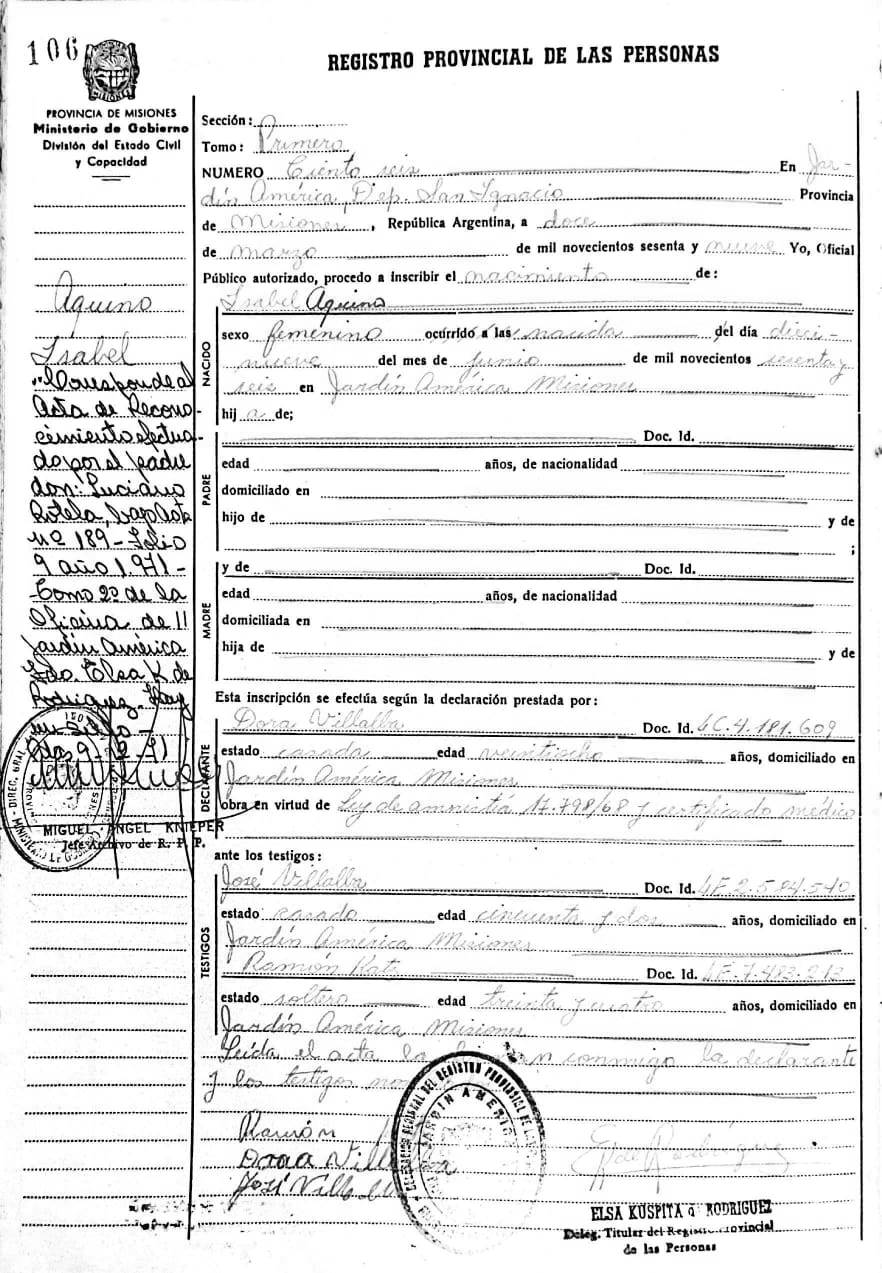 106
REGISTRO PROVINCIAL DE LAS PERSONAS
PROVINCIA DE MISIONES
Ministerio de Gobierno
División del Estado Civil
y Capacidad
Aquino
Isabel
Corresponde al
Acta de Recono-
cimiento efectua-
do por el padre
don: Luciano
Rotela, bajo Acta
nº 189 - Folio
9 año 1.971 -
Como 2º de la
Oficina de
Jardín América
Fdo. Elsa K de
Rodriguez. Hay
un sello -
MIGUEL ANGEL KNIEPER
Jefe Archivo de R. P. P.
Sección:
Tomo: Primero
NUMERO Ciento seis En Jar-
dín América, Dep. San Ignacio Provincia
de Misiones, República Argentina, a doce
de marzo de mil novecientos sesenta y nueve Yo, Oficial
Público autorizado, procedo a inscribir el nacimiento de:
Isabel Aquino
NACIDO
sexo femenino ocurrido a las nacida del día dieci-
nueve del mes de junio de mil novecientos sesenta y
seis en Jardín América Misiones
hija de;
PADRE
Doc. Id.
edad años, de nacionalidad
domiciliado en
hijo de y de
;
MADRE
y de Doc. Id.
edad años, de nacionalidad
domiciliada en
hija de y de
Esta inscripción se efectúa según la declaración prestada por:
DECLARANTE
Dora Villalba Doc. Id. LC.4.181.609
estado casada edad veintiocho años, domiciliado en
Jardín América Misiones
obra en virtud de Ley de amnistía 17.798/68 y certificado médico
ante los testigos:
TESTIGOS
José Villalba Doc. Id. 2.584.540
estado casado edad cincuenta y dos años, domiciliado en
Jardín América Misiones
Ramón Katz Doc. Id. 7.483.213
estado soltero edad treinta y cuatro años, domiciliado en
Jardín América Misiones
Leída el acta la firman conmigo la declarante
y los testigos
Ramón
Dora Villalba
José Villalba
JARDIN AMERICA
ELSA KUSPITA d RODRIGUEZ
Deleg. Titular del Registro Provincial
de las Personas